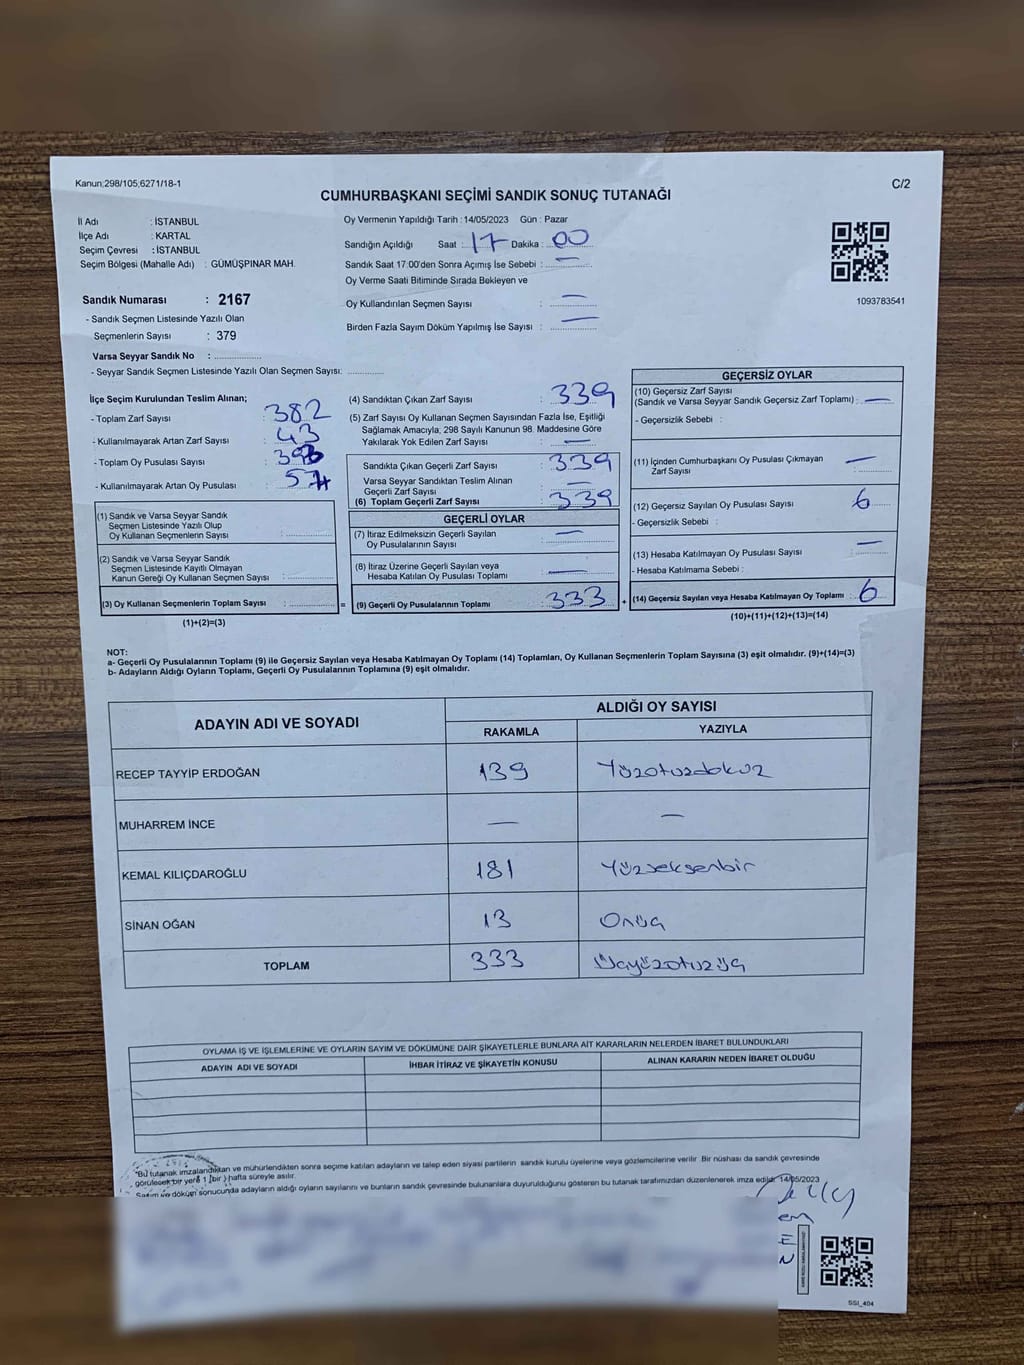 Kanun;298/105;6271/18-1
C/2
CUMHURBAŞKANI SEÇİMİ SANDIK SONUÇ TUTANAĞI
İl Adı : İSTANBUL
İlçe Adı : KARTAL
Seçim Çevresi : İSTANBUL
Seçim Bölgesi (Mahalle Adı) : GÜMÜŞPINAR MAH.
Sandık Numarası : 2167
- Sandık Seçmen Listesinde Yazılı Olan
Seçmenlerin Sayısı : 379
Varsa Seyyar Sandık No : ....................
- Seyyar Sandık Seçmen Listesinde Yazılı Olan Seçmen Sayısı: ...............
Oy Vermenin Yapıldığı Tarih : 14/05/2023 Gün : Pazar
Sandığın Açıldığı Saat : 17 Dakika : 00
Sandık Saat 17:00'den Sonra Açımış İse Sebebi : —
Oy Verme Saati Bitiminde Sırada Bekleyen ve
Oy Kullandırılan Seçmen Sayısı : —
Birden Fazla Sayım Döküm Yapılmış İse Sayısı : —
1093783541
İlçe Seçim Kurulundan Teslim Alınan;
- Toplam Zarf Sayısı : 382
- Kullanılmayarak Artan Zarf Sayısı : 43
- Toplam Oy Pusulası Sayısı :
- Kullanılmayarak Artan Oy Pusulası :
(1) Sandık ve Varsa Seyyar Sandık
Seçmen Listesinde Yazılı Olup
Oy Kullanan Seçmenlerin Sayısı :
(2) Sandık ve Varsa Seyyar Sandık
Seçmen Listesinde Kayıtlı Olmayan
Kanun Gereği Oy Kullanan Seçmen Sayısı :
(3) Oy Kullanan Seçmenlerin Toplam Sayısı : =
(1)+(2)=(3)
(4) Sandıktan Çıkan Zarf Sayısı : 339
(5) Zarf Sayısı Oy Kullanan Seçmen Sayısından Fazla İse, Eşitliği
Sağlamak Amacıyla, 298 Sayılı Kanunun 98. Maddesine Göre
Yakılarak Yok Edilen Zarf Sayısı : —
Sandıkta Çıkan Geçerli Zarf Sayısı : 339
Varsa Seyyar Sandıktan Teslim Alınan
Geçerli Zarf Sayısı : —
(6) Toplam Geçerli Zarf Sayısı : 339
GEÇERLİ OYLAR
(7) İtiraz Edilmeksizin Geçerli Sayılan
Oy Pusulalarının Sayısı : —
(8) İtiraz Üzerine Geçerli Sayılan veya
Hesaba Katılan Oy Pusulası Toplamı : —
(9) Geçerli Oy Pusulalarının Toplamı : 333 +
GEÇERSİZ OYLAR
(10) Geçersiz Zarf Sayısı
(Sandık ve Varsa Seyyar Sandık Geçersiz Zarf Toplamı) : —
- Geçersizlik Sebebi :
(11) İçinden Cumhurbaşkanı Oy Pusulası Çıkmayan
Zarf Sayısı : —
(12) Geçersiz Sayılan Oy Pusulası Sayısı : 6
- Geçersizlik Sebebi :
(13) Hesaba Katılmayan Oy Pusulası Sayısı : —
- Hesaba Katılmama Sebebi :
(14) Geçersiz Sayılan veya Hesaba Katılmayan Oy Toplamı : 6
(10)+(11)+(12)+(13)=(14)
NOT:
a- Geçerli Oy Pusulalarının Toplamı (9) ile Geçersiz Sayılan veya Hesaba Katılmayan Oy Toplamı (14) Toplamları, Oy Kullanan Seçmenlerin Toplam Sayısına (3) eşit olmalıdır. (9)+(14)=(3)
b- Adayların Aldığı Oyların Toplamı, Geçerli Oy Pusulalarının Toplamına (9) eşit olmalıdır.
ADAYIN ADI VE SOYADI
ALDIĞI OY SAYISI
RAKAMLA YAZIYLA
RECEP TAYYİP ERDOĞAN 139 Yüzotuzdokuz
MUHARREM İNCE — —
KEMAL KILIÇDAROĞLU 181 Yüzseksenbir
SİNAN OĞAN 13 Onüç
TOPLAM 333 Üçyüzotuzüç
OYLAMA İŞ VE İŞLEMLERİNE VE OYLARIN SAYIM VE DÖKÜMÜNE DAİR ŞİKAYETLERLE BUNLARA AİT KARARLARIN NELERDEN İBARET BULUNDUKLARI
ADAYIN ADI VE SOYADI İHBAR İTİRAZ VE ŞİKAYETİN KONUSU ALINAN KARARIN NEDEN İBARET OLDUĞU
*Bu tutanak imzalandıktan ve mühürlendikten sonra seçime katılan adayların ve talep eden siyasi partilerin sandık kurulu üyelerine veya gözlemcilerine verilir. Bir nüshası da sandık çevresinde
görülecek bir yere 1 (bir) hafta süreyle asılır.
Sayım ve döküm sonucunda adayların aldığı oyların sayılarını ve bunların sandık çevresinde bulunanlara duyurulduğunu gösteren bu tutanak tarafımızdan düzenlenerek imza edildi. 14/05/2023
SSI_404